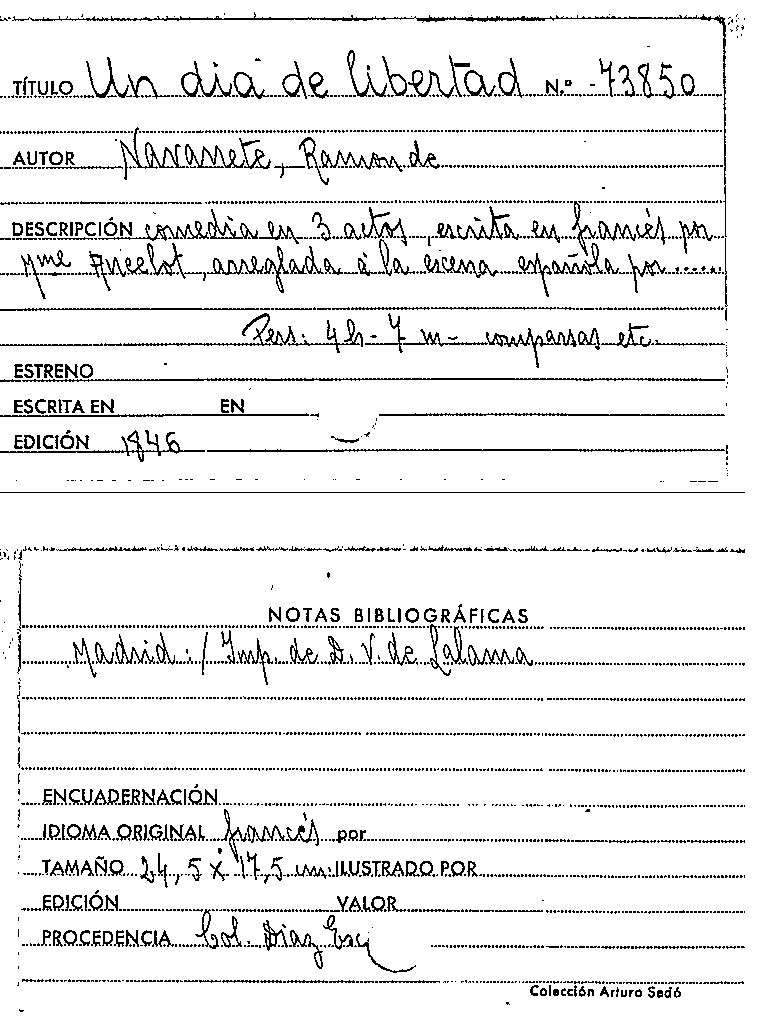 TÍTULO Un dia de libertad N.º 73850
AUTOR Navarrete, Ramon de
DESCRIPCIÓN comedia en 3 actos, escrita en francés por
Mme Ancelot, arreglada a la escena española por ......
Pers: 4 h - 7 m - comparsas etc.
ESTRENO
ESCRITA EN EN
EDICIÓN 1846
NOTAS BIBLIOGRÁFICAS
Madrid: / Imp. de D. V. de Lalama
ENCUADERNACIÓN
IDIOMA ORIGINAL francés por
TAMAÑO 24,5 x 17,5 cm. ILUSTRADO POR
EDICIÓN VALOR
PROCEDENCIA Col. Diaz Esc
Colección Arturo Sedó